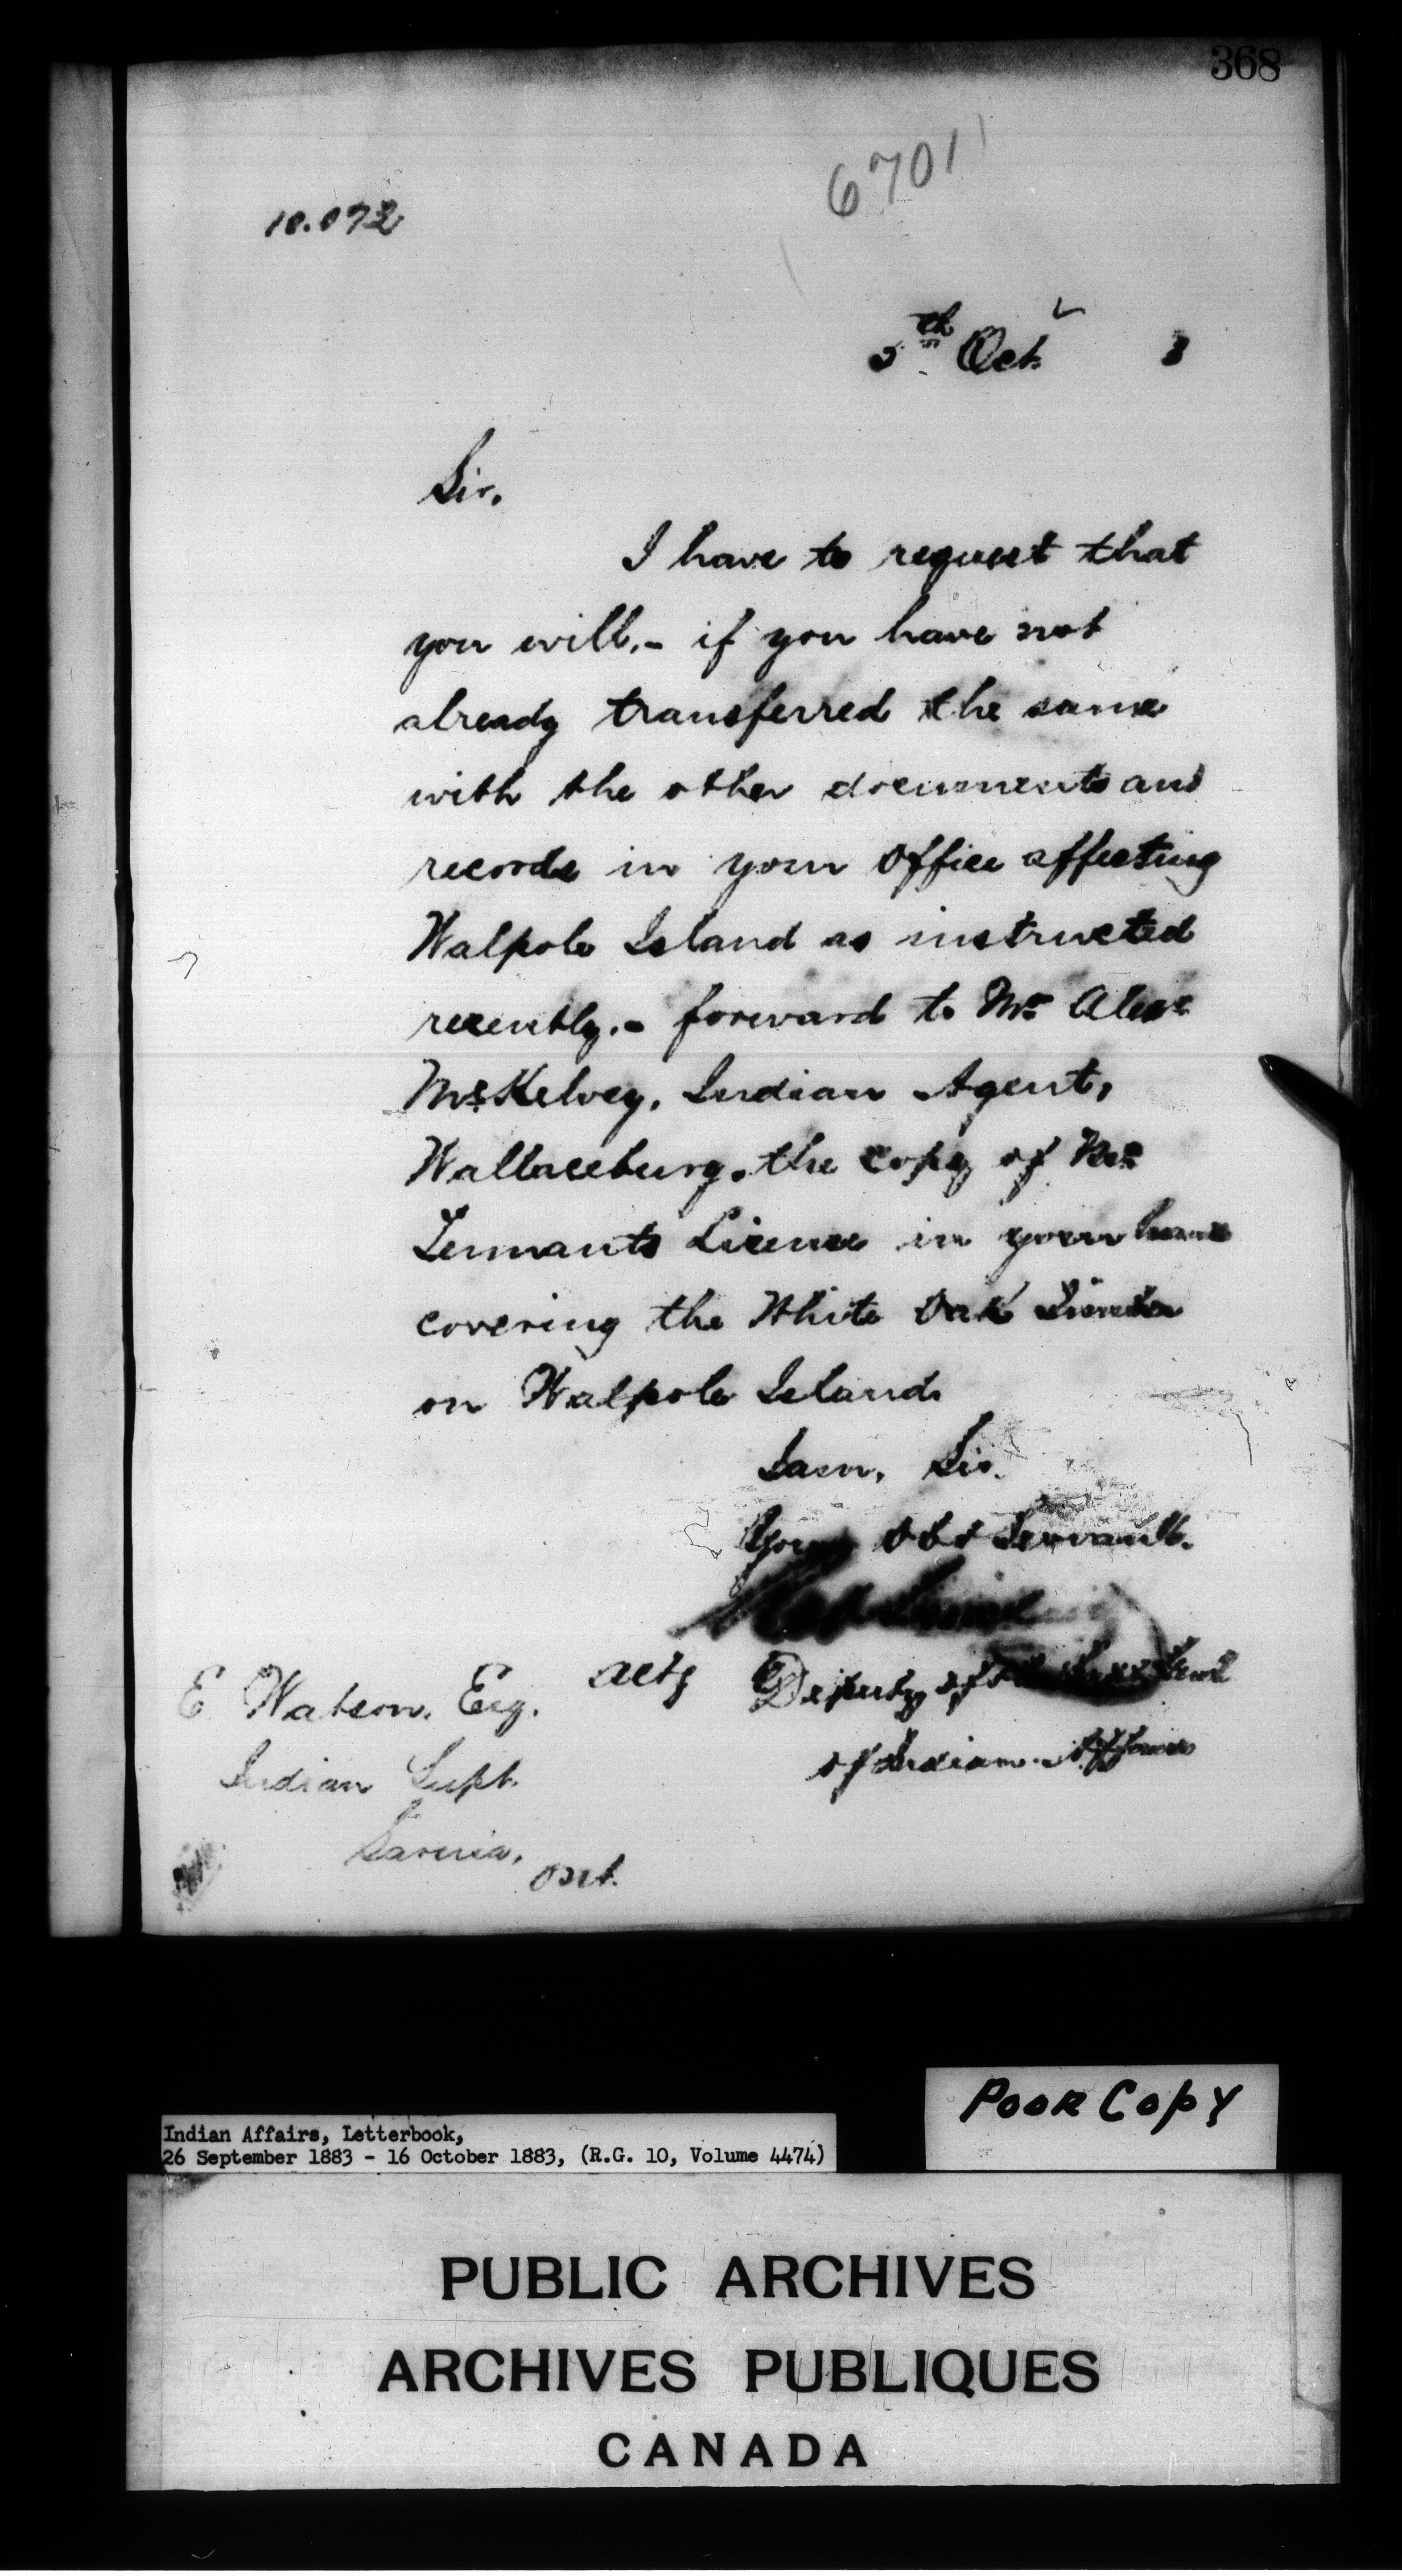 368
6701
10.072
5th Oct. 3
Sir,
I have to request that
you will,- if you have not
already transferred the same
with the other documents and
records in your Office affecting
Walpole Island as instructed
recently,- forward to Mr Alexr
McKelvey, Indian Agent,
Wallaceburg, the copy of Mr
Lennants License in your
covering the White Oak Timber
on Walpole Island.
I am, Sir,
Your Obt Servant.
actg Deputy of the Supt Genl
of Indian Affairs
E Watson, Esq.
Indian Supt.
Sarnia,
Ont.
POOR COPY
Indian Affairs, Letterbook,
26 September 1883 - 16 October 1883, (R.G. 10, Volume 4474)
PUBLIC ARCHIVES
ARCHIVES PUBLIQUES
CANADA